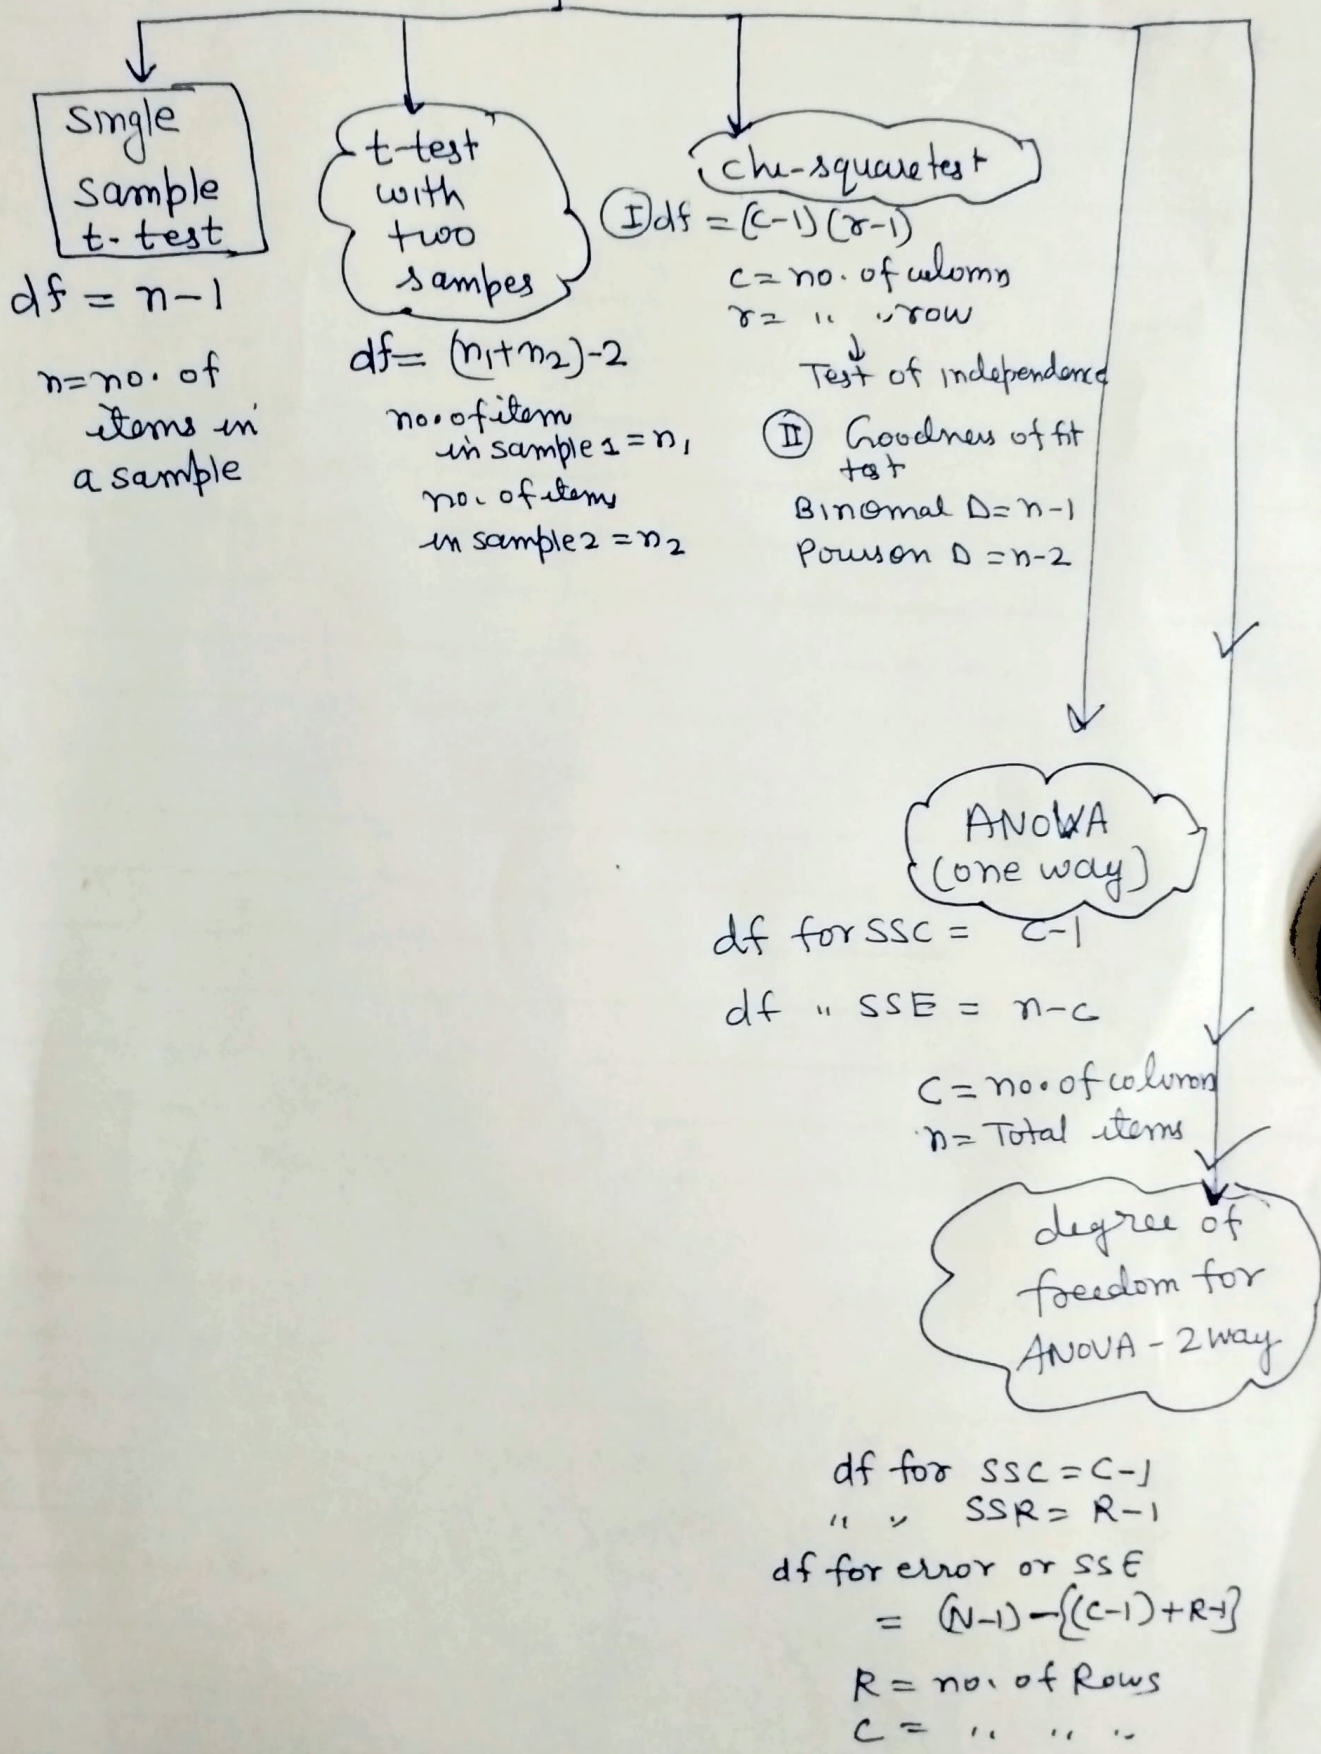 Single
sample
t-test
df = n-1
n=no. of
items in
a sample
t-test
with
two
sampes
df= (n1+n2)-2
no. of item
in sample 1 = n1
no. of items
in sample 2 = n2
chi-square test
I df = (C-1) (r-1)
C = no. of colomn
r = " " row
↓
Test of independence
II Goodness of fit
test
Binomal D = n-1
Poisson D = n-2
ANOVA
(one way)
df for SSC = C-1
df " SSE = n-c
C = no. of column
n = Total items
degree of
freedom for
ANOVA - 2 way
df for SSC = C-1
" " SSR = R-1
df for error or SSE
= (N-1) - {(C-1)+R-1}
R = no. of Rows
C = " " "